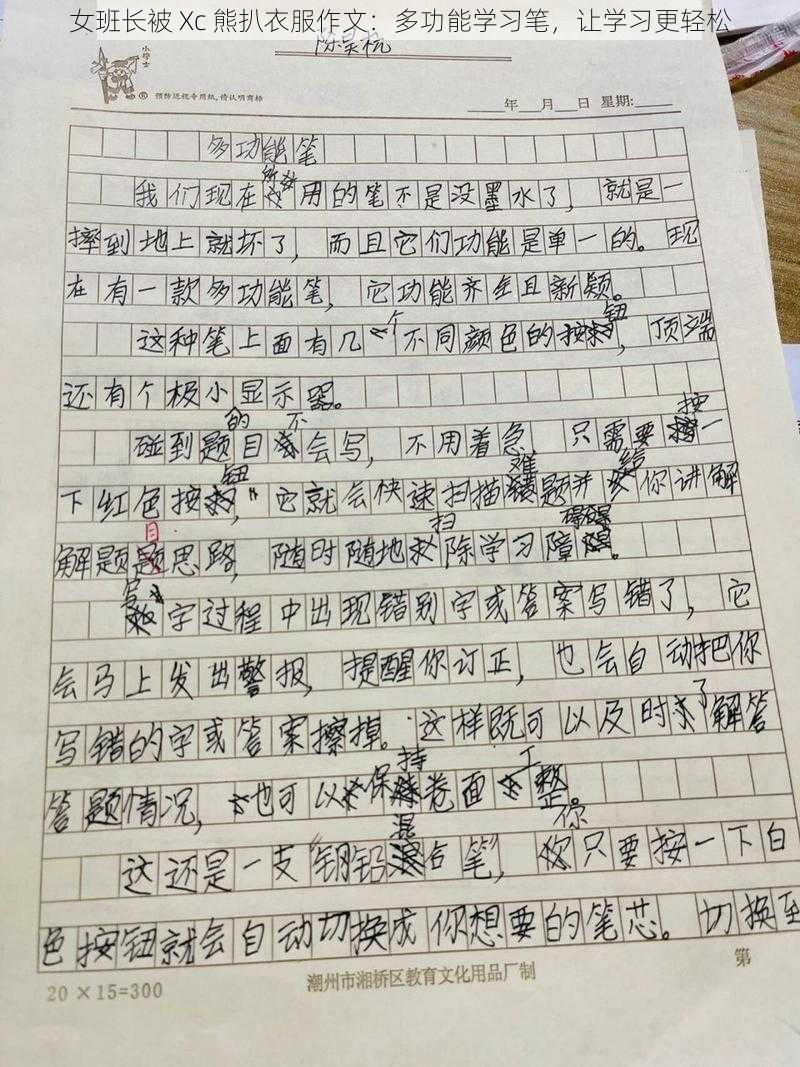 女班长被 Xc 熊扒衣服作文：多功能学习笔，让学习更轻松
陈昊杭
小博士
® 预防近视专用纸,请认明商标
年 月 日 星期:
多功能笔
我们现在所用的笔不是没墨水了，就是一
摔到地上就坏了，而且它们功能是单一的。现
在有一款多功能笔，它功能齐全且新颖。
这种笔上面有几个不同颜色的按钮，顶端
还有个极小显示器。
碰到题目的不会写，不用着急，只需要按一
下红色按钮，它就会快速扫描难题并给你讲解
解题题目思路，随时随地扫除学习障碍。
写字过程中出现错别字或答案写错了，它
会马上发出警报，提醒你订正，也会自动把你
写错的字或答案擦掉。这样既可以及时了解答
答题情况，也可以保持卷面工整。
这还是一支“钢铅混合笔”，你只要按一下白
色按钮就会自动切换成你想要的笔芯。切换至
20×15=300
潮州市湘桥区教育文化用品厂制
第